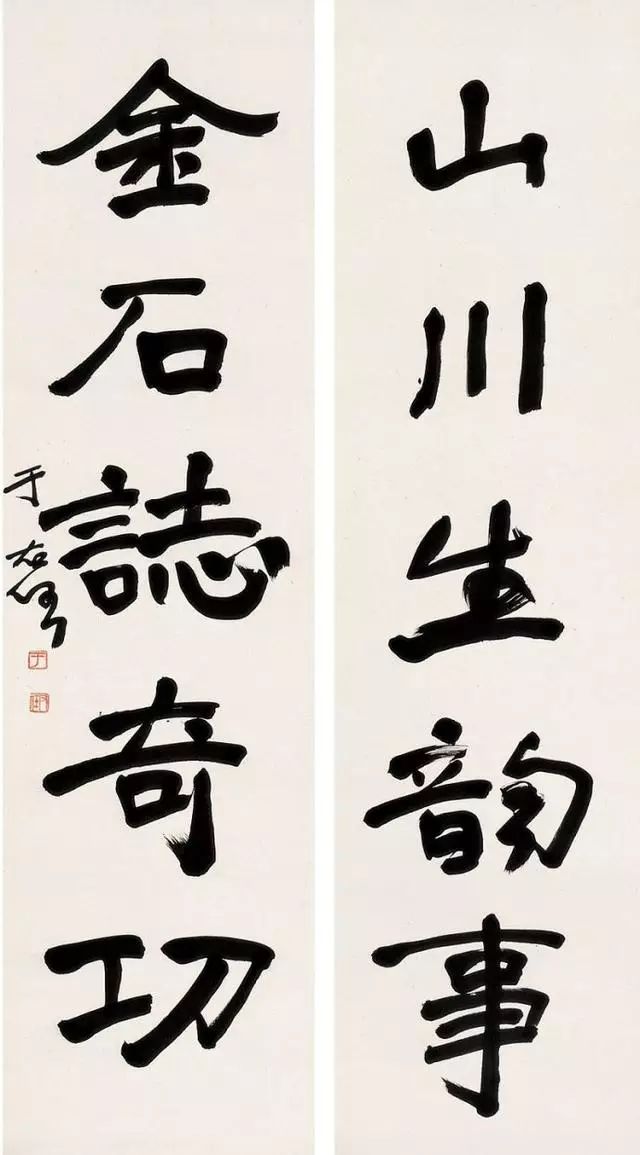 山川生韵事
金石誌奇功
于右
于